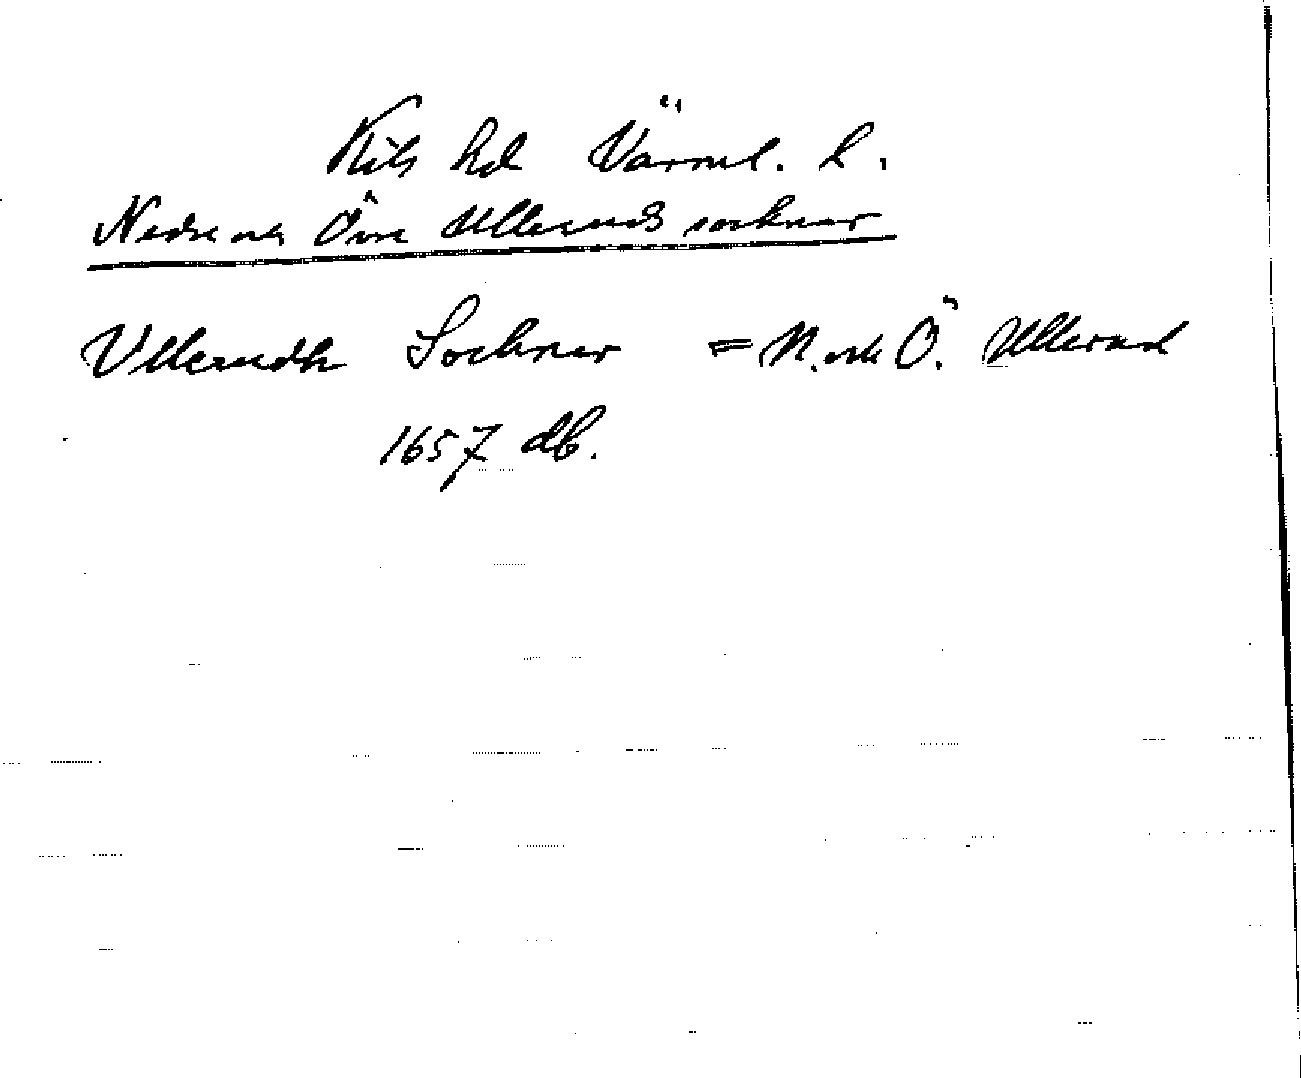 Kils hd Värml. l.
Nedre och Övre Ulleruds socknar
Vllerudh Sochner = N. och Ö. Ullerud
1657 db.